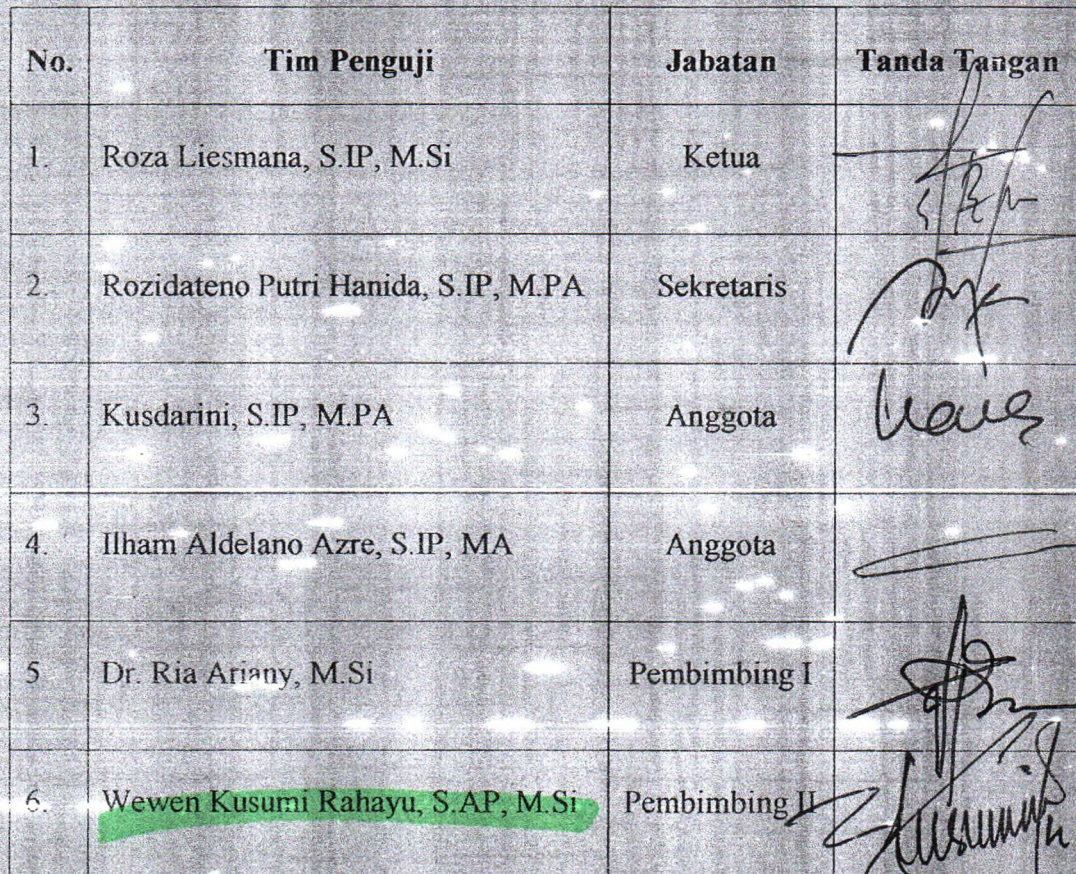 No. Tim Penguji Jabatan Tanda Tangan
1. Roza Liesmana, S.IP, M.Si Ketua
2. Rozidateno Putri Hanida, S.IP, M.PA Sekretaris
3. Kusdarini, S.IP, M.PA Anggota
4. Ilham Aldelano Azre, S.IP, MA Anggota
5 Dr. Ria Ariany, M.Si Pembimbing I
6. Wewen Kusumi Rahayu, S.AP, M.Si Pembimbing II